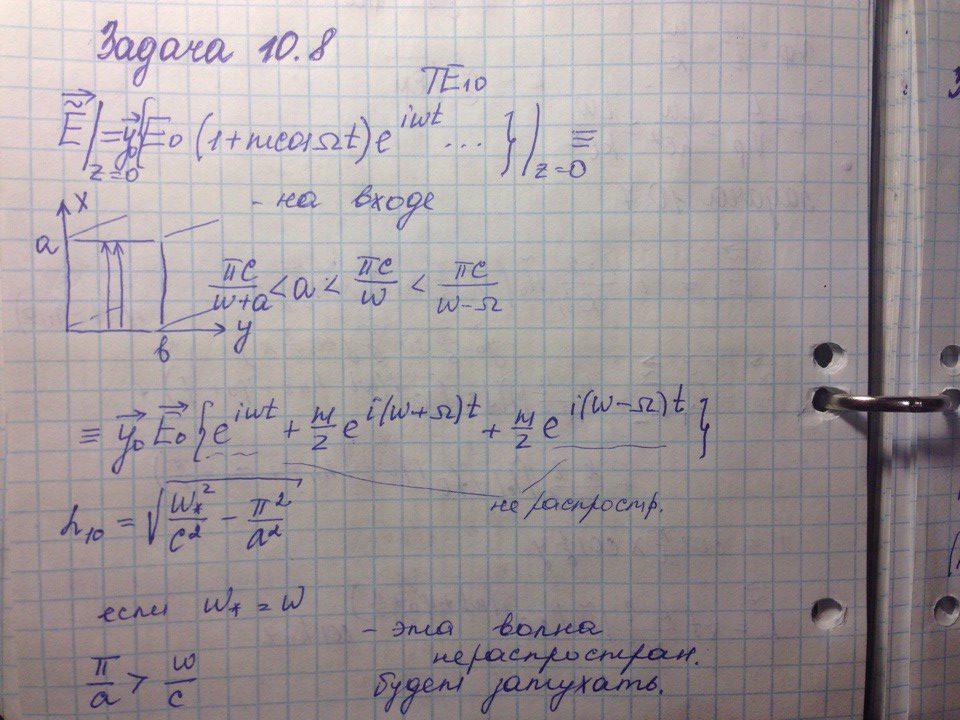 Задача 10.8
TE₁₀
Ẽ⃗|_{z=0} = y⃗₀{E₀ (1+m cos Ωt) e^{iωt} ... }|_{z=0} ≡
- на входе
x
a
y
в
πc/(ω+a) < a < πc/ω < πc/(ω-Ω)
≡ y⃗₀ E⃗₀ {e^{iωt} + m/2 e^{i(ω+Ω)t} + m/2 e^{i(ω-Ω)t}}
не распростр.
h₁₀ = √(ω*²/c² - π²/a²)
если ω* = ω
π/a > ω/c
- эта волна
нераспростран.
будет затухать.